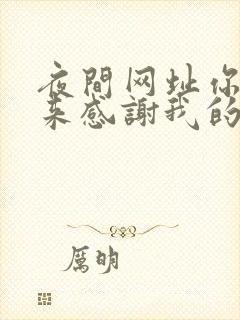 夜間网址你
来感謝我的
厲明